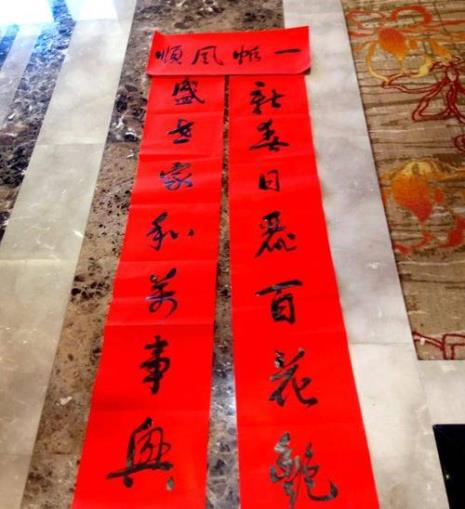 一帆风順
新春日丽百花艳
盛世家和万事興